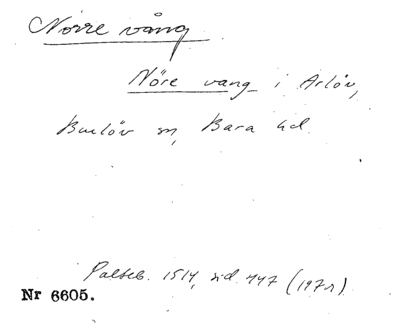 Norre vång
Nöre vang i Arlöv,
Burlöv sn, Bara hd.
Palteb. 1514, sid 447 (197r)
Nr 6605.